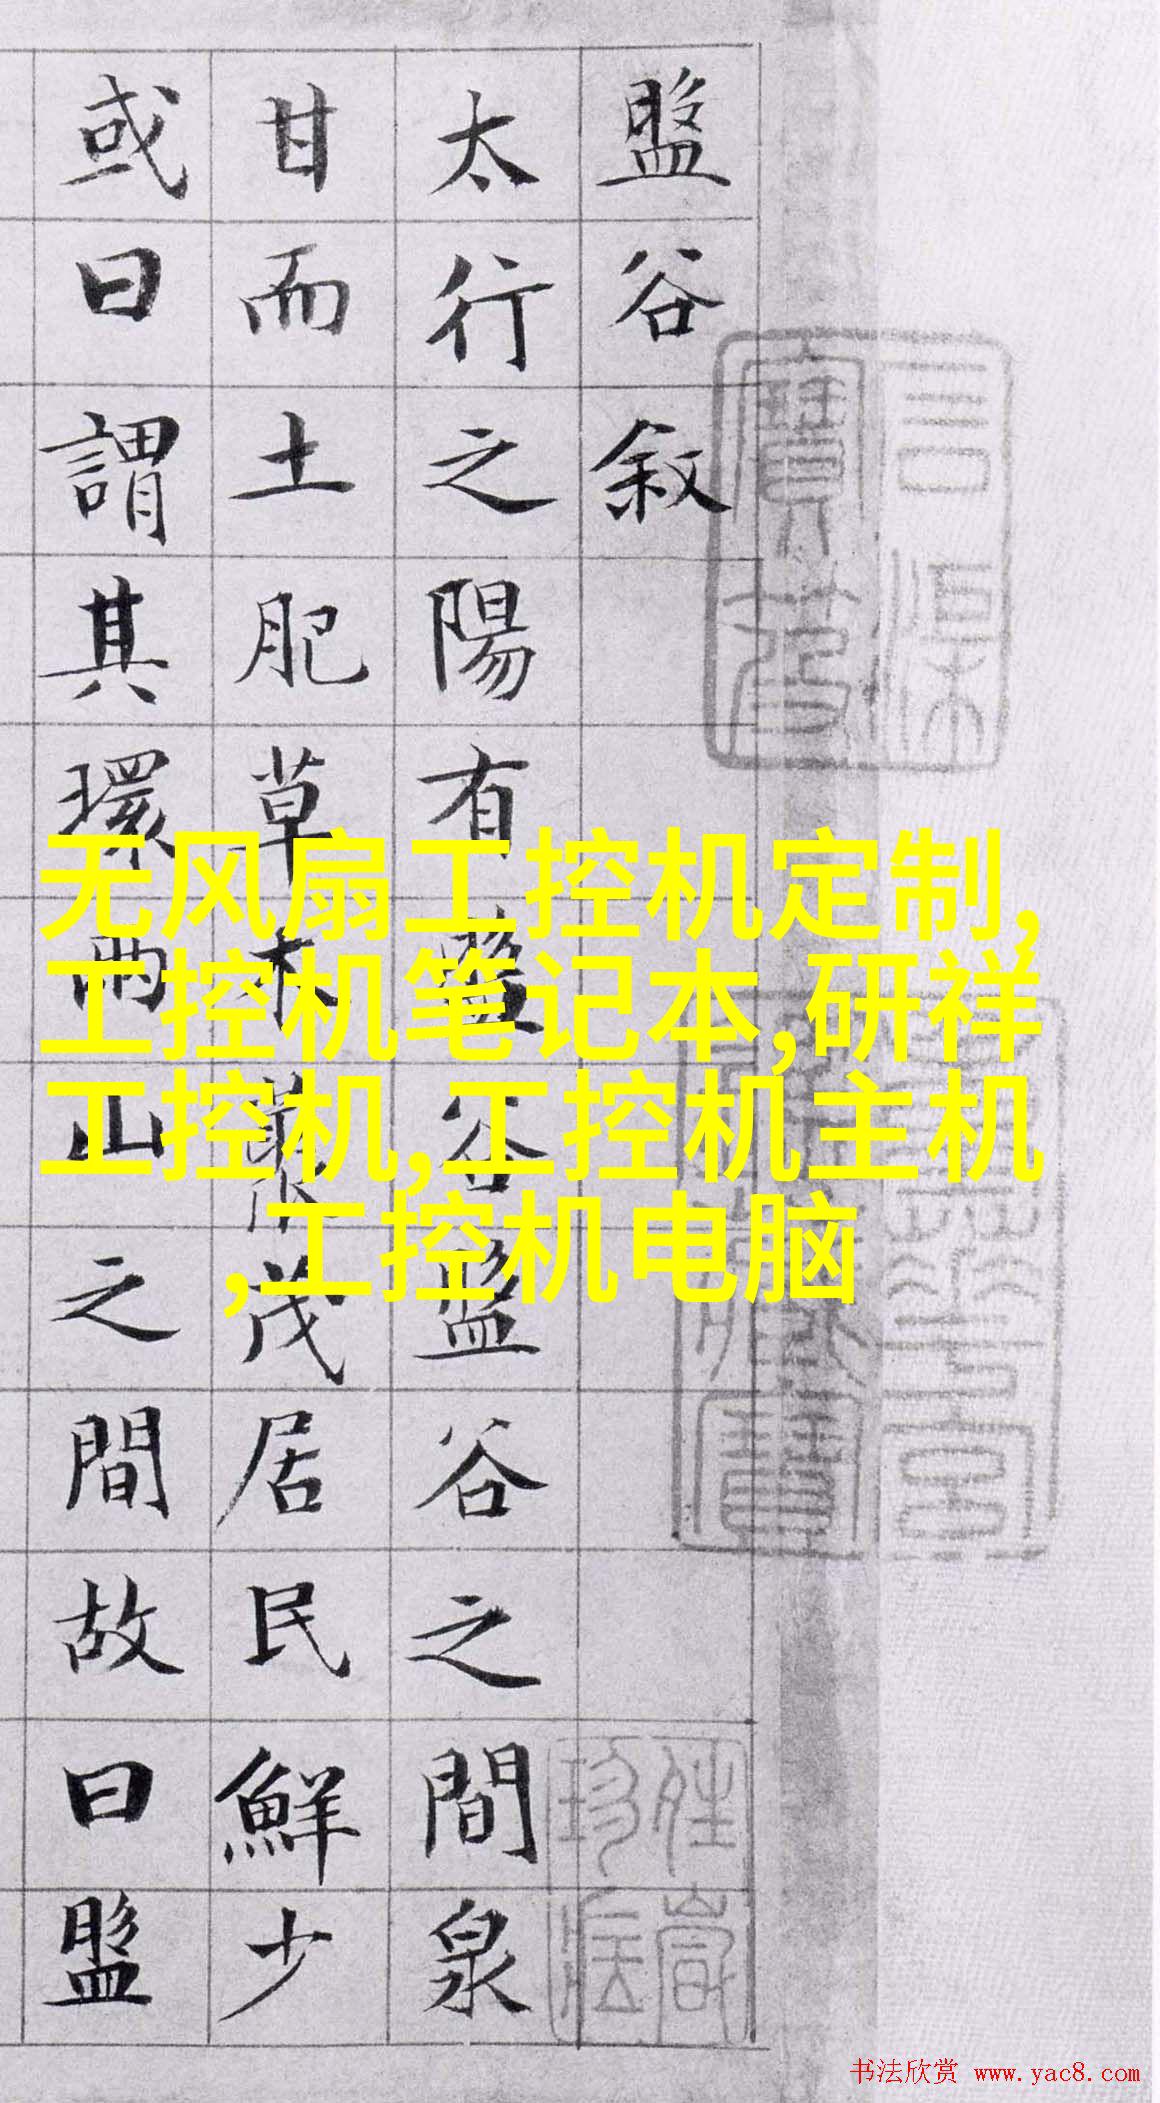 盤谷敘
太行之陽有盤谷盤谷之間泉
甘而土肥草木叢茂居民鮮少
或曰謂其環兩山之間故曰盤
石渠寶笈
无风扇工控机定制,
工控机笔记本,研祥
工控机,工控机主机
,工控机电脑
书法欣赏 www.yac8.com